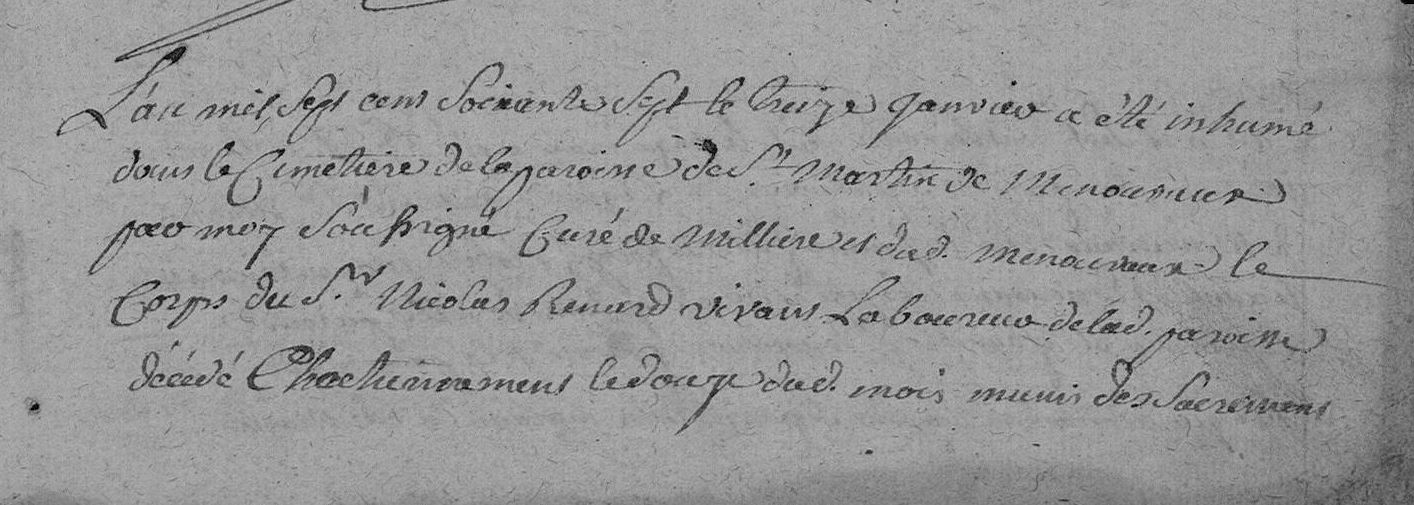 L'an mil, sept cens soixante sept le treize janvier a été inhumé
dans le Cimetiere de la paroisse de St. Martin de Menouveux
par moy soussigné Curé de Milliere et dud. Menouveux le
Corps du Sr. Nicolas Renard vivant Laboureur de lad. paroisse
décédé Chretiennement le douze dud. mois munis des Sacremens